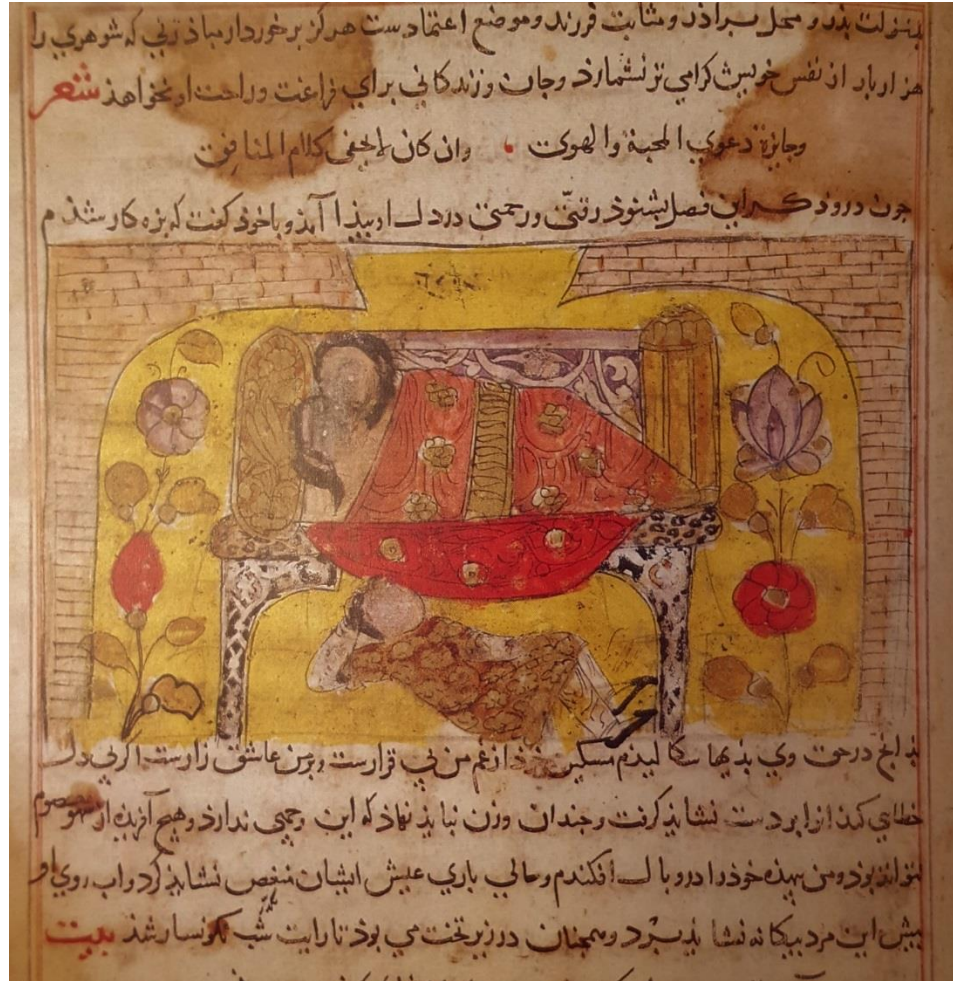 بمنزلت بذر و محل براذر و مثابت فرزند و موضع اعتماد ست هركز برخوردار مباذ زني كه شوهري را
هزار بار از نفس خويش كرامي تر نشمارد و جان و زندكاني براي فراغت و راحت او نخواهذ شعر
وجائزة دعوي المحبة والهوي وان كان لا يخفى كلام المنافق
جون دروذكر اين فصل بشنوذ رقتّي و رحمتي در دل او بيذا آمذ و با خوذ كفت كه بزه كار شذم
بذانج در حق وي بذيها سكاليذم مسكين خوذ از غم من بي قرارست و در من عاشق زارست اكر بي دل
خطايي كند انرا بر دست نشايذ كرفت و جندان وزن نبايذ نهاذ كه اين وجهي ندارد و هيچ آفريذه از سهو معصوم
نتواند بوذ و من بيهذه خوذ را در وبال افكندم و حالي باري عيش ايشان منغص نشايذ كرد و اب روي او
بيش اين مرد بيكانه نشايذ برد و همجنان در زير تخت مي بوذ تا رايت شب نكونسار شذ بيت